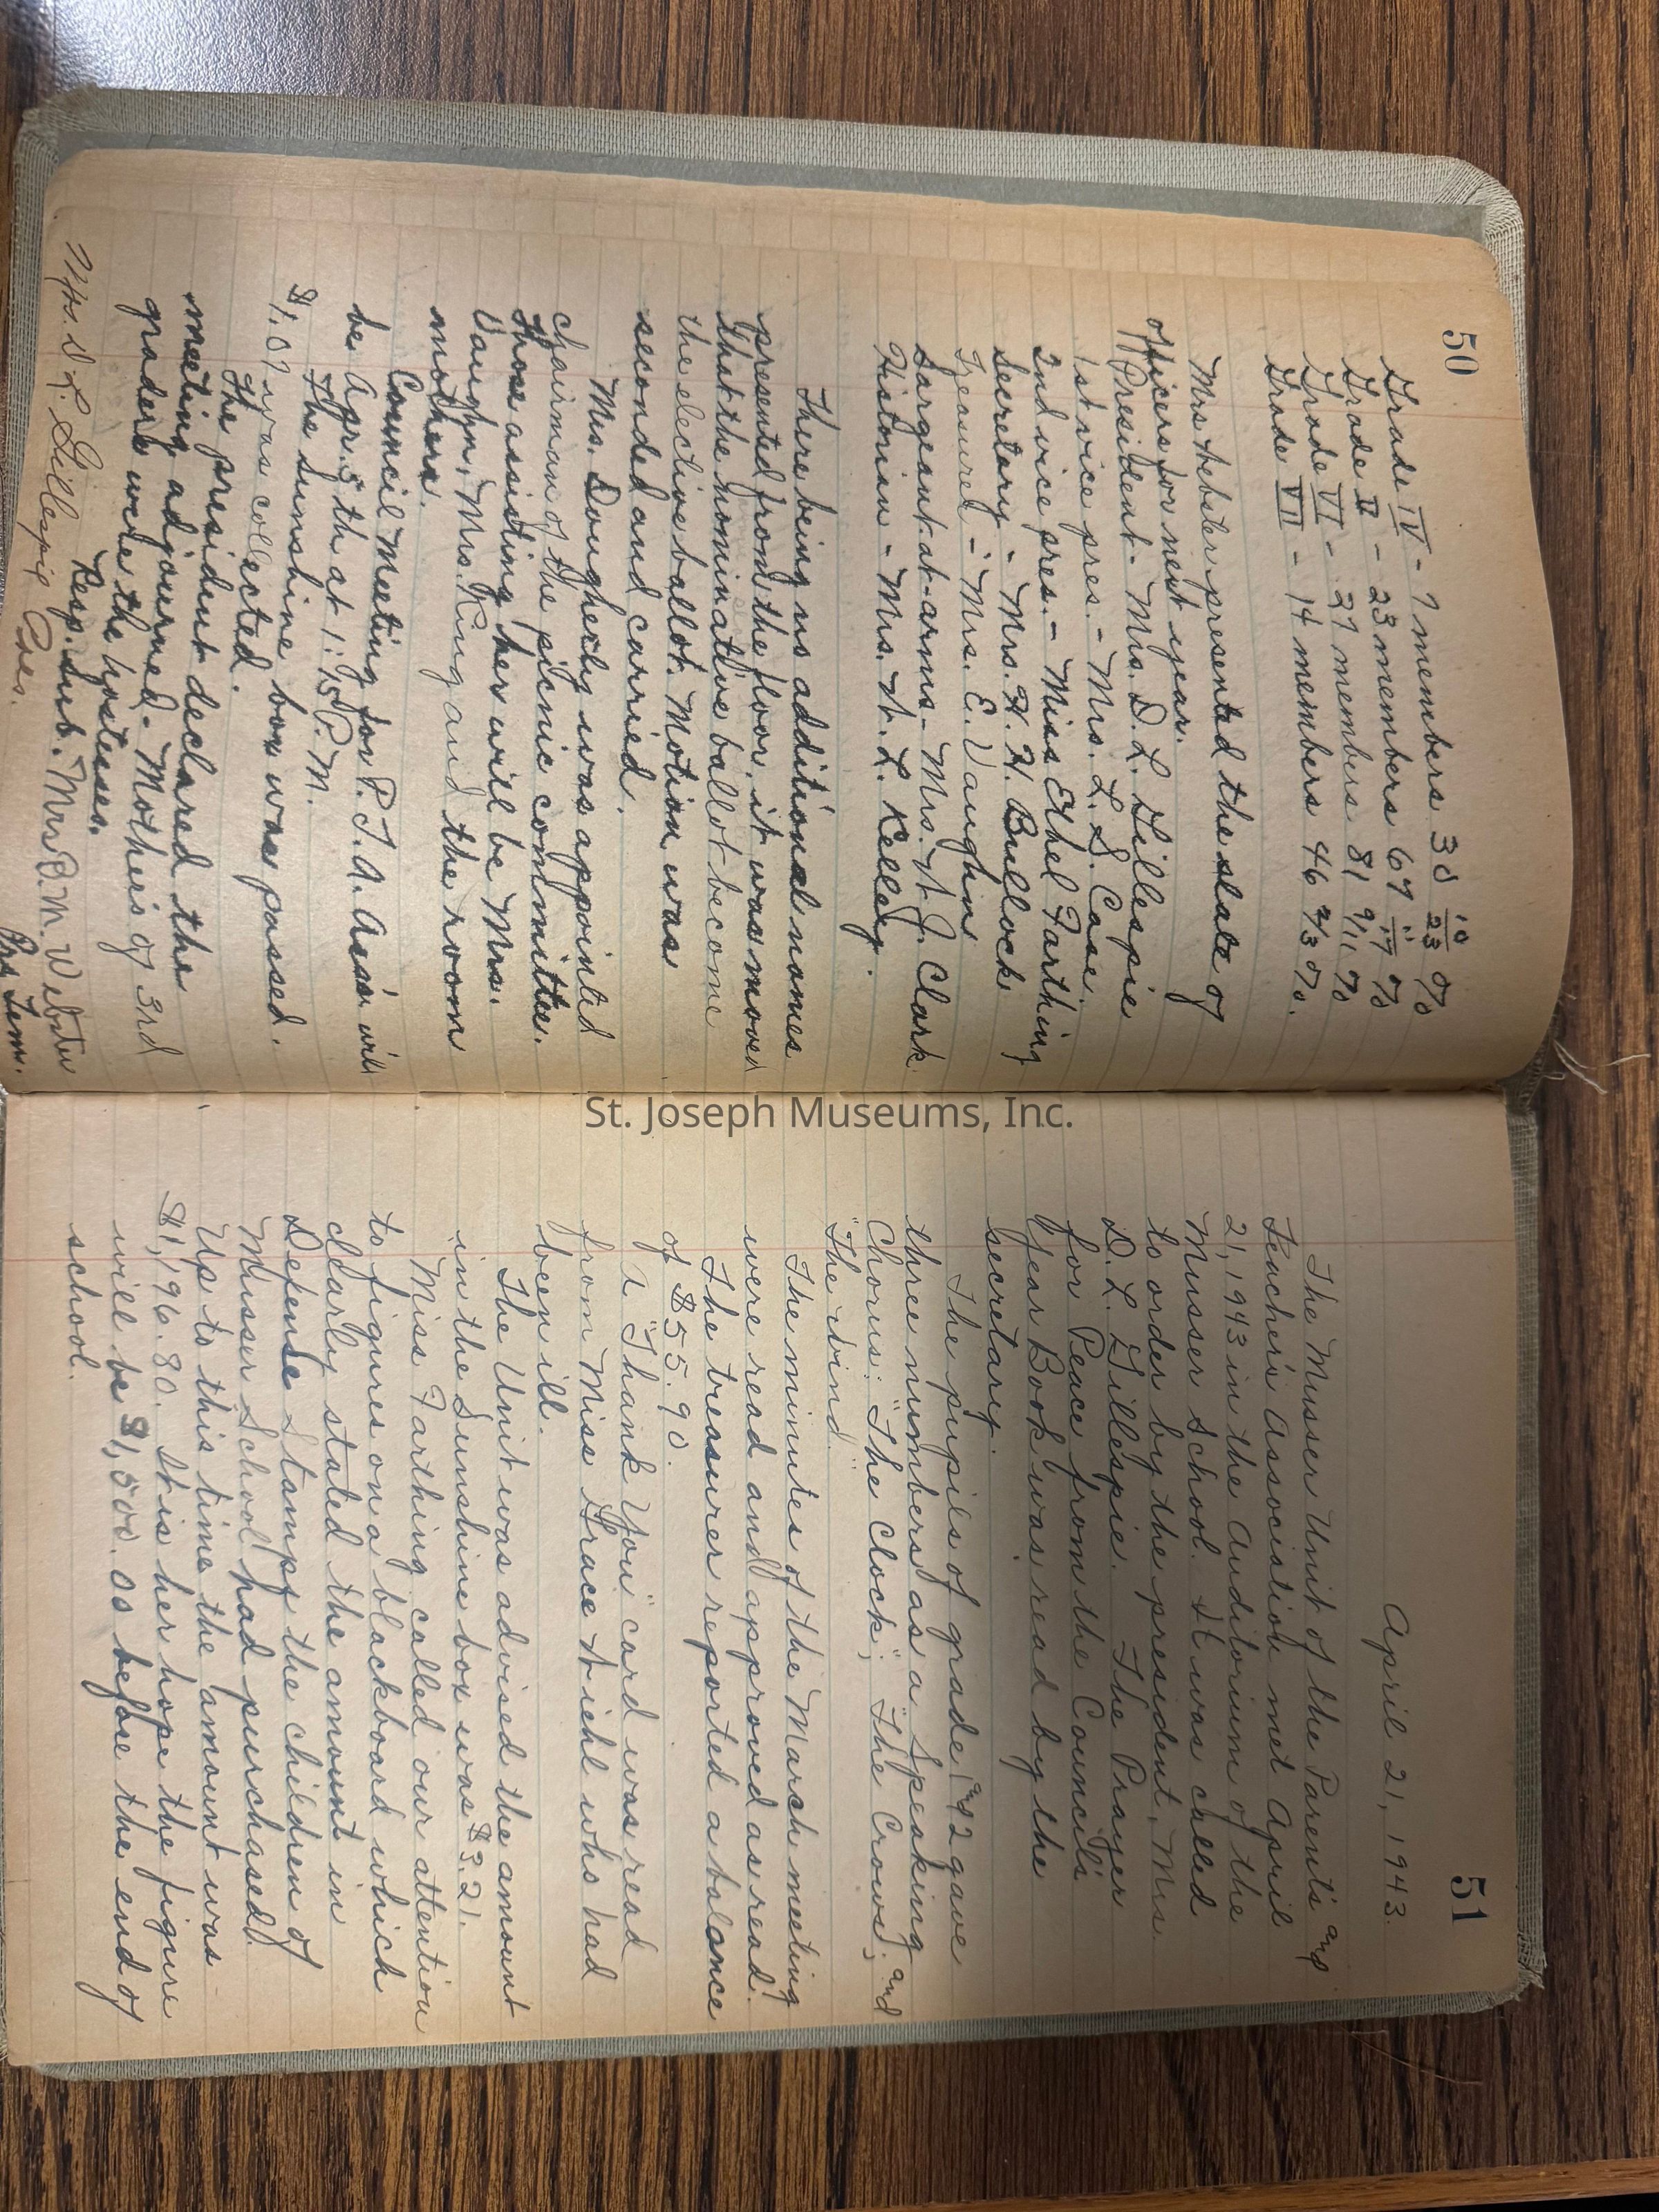 50
Grade IV - 7 members 30 10/23 %
Grade V - 23 members 67 11/17 %
Grade VI - 27 members 81 9/11 %
Grade VII - 14 members 46 2/3 %.
Mrs Webster presented the slate of
officers for next year.
President - Mrs. D. L. Gillespie
1st vice pres. - Mrs. L. S. Case
2nd vice pres. - Miss Ethel Farthing
Secretary - Mrs. H. H. Bullock
Treasurer - Mrs. E. Vaughn
Sargeant-at-arms - Mrs. W. J. Clark
Historian - Mrs. W. L. Kelley.
There being no additional names
presented from the floor, it was moved
that the nominative ballot become
the elective ballot. Motion was
seconded and carried.
Mrs. Dougherty was appointed
chairman of the picnic committee.
Those assisting her will be Mrs.
Vaughn, Mrs. King and the room
mothers.
Council Meeting for P. T. A. Ass'n will
be Apr. 5th at 1:15 P. M.
The Sunshine box was passed.
$1.07 was collected.
The president declared the
meeting adjourned - Mothers of 3rd
graders were the hostesses.
Resp. Sub. Mrs O. M. Webster
Pro Tem.
Mrs. D. L. Gillespie Pres.
St. Joseph Museums, Inc.
51
April 21, 1943.
The Musser Unit of the Parent's and
Teacher's Association met April
21, 1943 in the Auditorium of the
Musser School. It was called
to order by the president, Mrs.
D. L. Gillespie. The Prayer
for Peace from the Council's
Year Book was read by the
secretary.
The pupils of grade 1 and 2 gave
three numbers as a Speaking
Chorus: "The Clock"; "The Crows"; and
"The Wind."
The minutes of the March meeting
were read and approved as read.
The treasurer reported a balance
of $55.90.
A "Thank You" card was read
from Miss Grace Wiehl who had
been ill.
The Unit was advised the amount
in the Sunshine box was $3.21.
Miss Farthing called our attention
to figures on a blackboard which
clearly stated the amount in
Defense Stamps the children of
Musser School had purchased.
Up to this time the amount was
$1,196.80. It is her hope the figure
will be $1,500.00 before the end of
school.